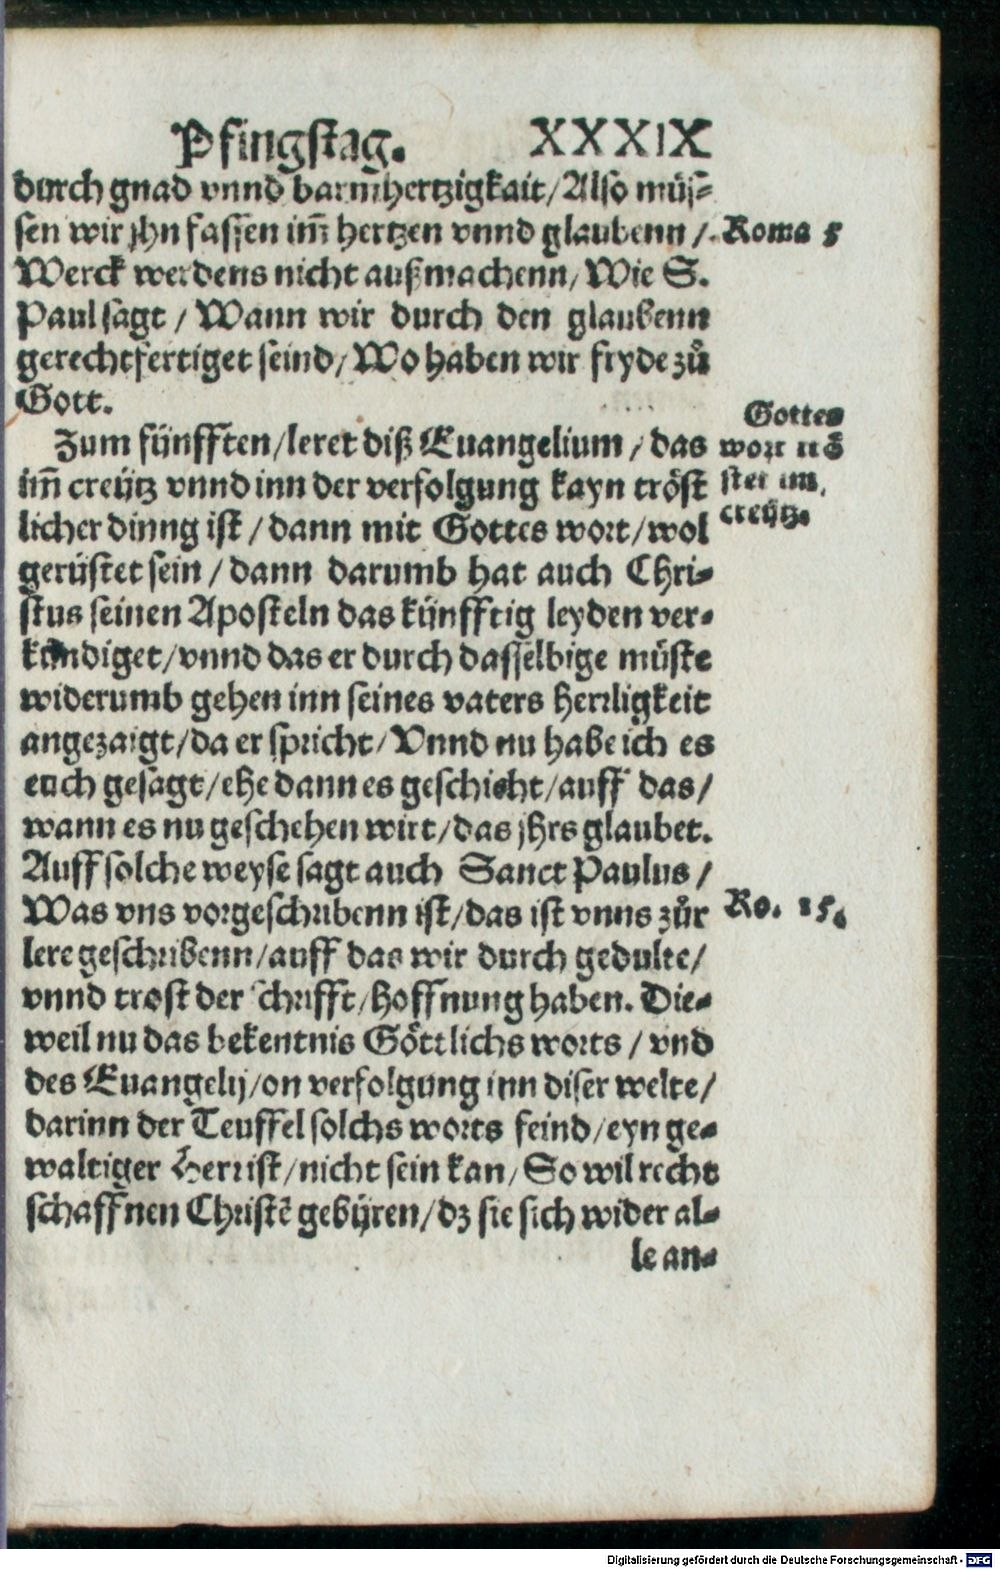 Pfingstag. XXXIX
durch gnad vnnd barmhertzigkait/Also müs-
sen wir jhn fassen im̃ hertzen vnnd glaubenn /. Roma 5
Werck werdens nicht außmachenn/ Wie S.
Paul sagt / Wann wir durch den glaubenn
gerechtfertiget seind/ Wo haben wir fryde zů
Gott.
Zum fünfften/leret diß Euangelium / das
im̃ creütz vnnd inn der verfolgung kayn tröst
licher dinng ist / dann mit Gottes wort/wol
gerüstet sein / dann darumb hat auch Chri-
stus seinen Aposteln das künfftig leyden ver-
kündiget/vnnd das er durch dasselbige müste
widerumb gehen inn seines vaters herrligkeit
angezaigt/da er spricht/ Vnnd nu habe ich es
euch gesagt/ehe dann es geschicht/auff das/
wann es nu geschehen wirt/das jhrs glaubet.
Auff solche weyse sagt auch Sanct Paulus /
Was vns vorgeschribenn ist/das ist vnns zůr
lere geschribenn/auff das wir durch gedulte/
vnnd trost der schrifft/hoffnung haben. Die-
weil nu das bekentnis Göttlichs worts / vnd
des Euangelij/on verfolgung inn diser welte/
darinn der Teuffel solchs worts feind/eyn ge-
waltiger Herr ist/nicht sein kan/ So wil recht
schaffnen Christẽ gebüren/dz sie sich wider al-
le an-
Gottes
wort trö
stet im
creütz.
Ro. 15.
Digitalisierung gefördert durch die Deutsche Forschungsgemeinschaft - DFG